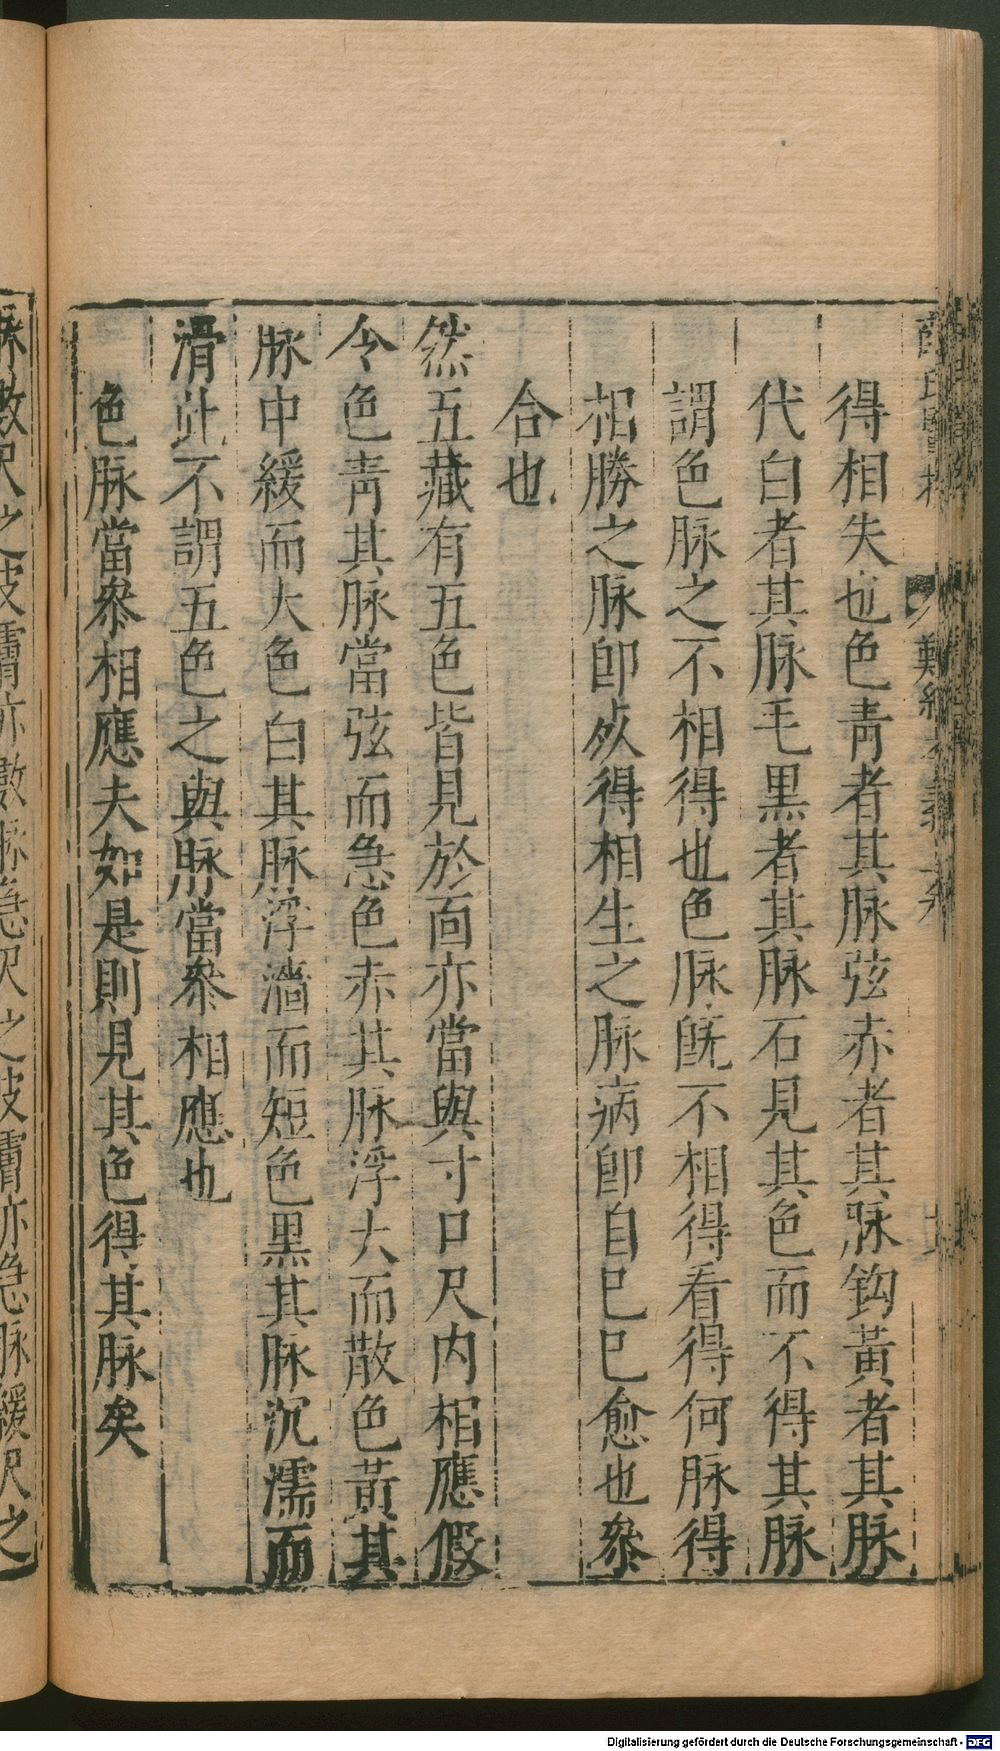 得相失也色青者其脉弦赤者其脉鈎黄者其脉
代白者其脉毛黒者其脉石見其色而不得其脉
謂色脉之不相得也色脉旣不相得看得何脉得
相勝之脉卽死得相生之脉病卽自已已愈也叅
合也
然五藏有五色皆見於面亦當與寸口尺内相應假
令色青其脉當弦而急色赤其脉浮大而散色黄其
脉中緩而大色白其脉浮濇而短色黒其脉沉濡而
滑此不謂五色之與脉當叅相應也
色脉當叅相應夫如是則見其色得其脉矣
脉數尺之皮膚亦數脉急尺之皮膚亦急脉緩尺之
Digitalisierung gefördert durch die Deutsche Forschungsgemeinschaft - DFG